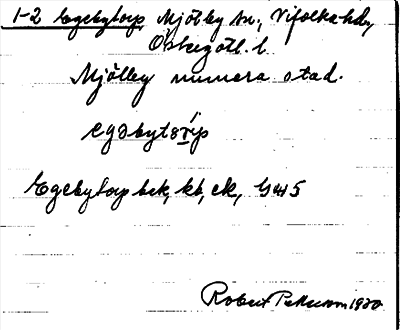 1-2 Egebytorp Mjölby sn., Vifolka hd,
Östergötl. l.
Mjölby numera stad.
Egebytorp bek, kb, ek, GW5
Robert Pettersson 1930